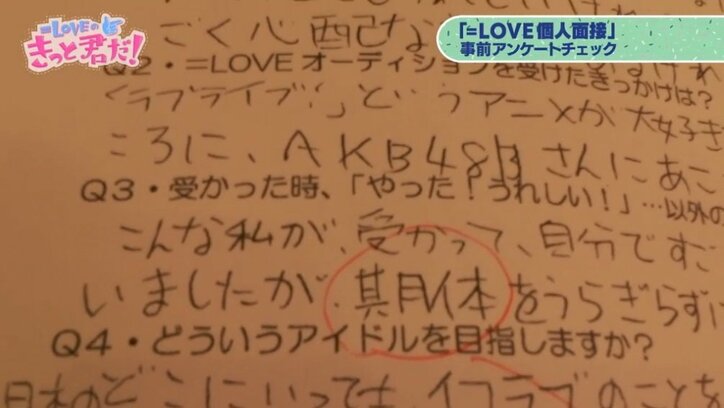 =LOVEの
きっと君だ!
「=LOVE個人面接」
事前アンケートチェック
ごく心配な
Q2・=LOVEオーディションを受けたきっかけは?
「ラブライブ!」というアニメが大好き
ころに、AKB48さんにあこ
Q3・受かった時、「やった!うれしい!」…以外の
こんな私が、受かって、自分です
いましたが、期体をうらぎらずに
Q4・どういうアイドルを目指しますか?
日本のどこにいっても、イコラブのことを